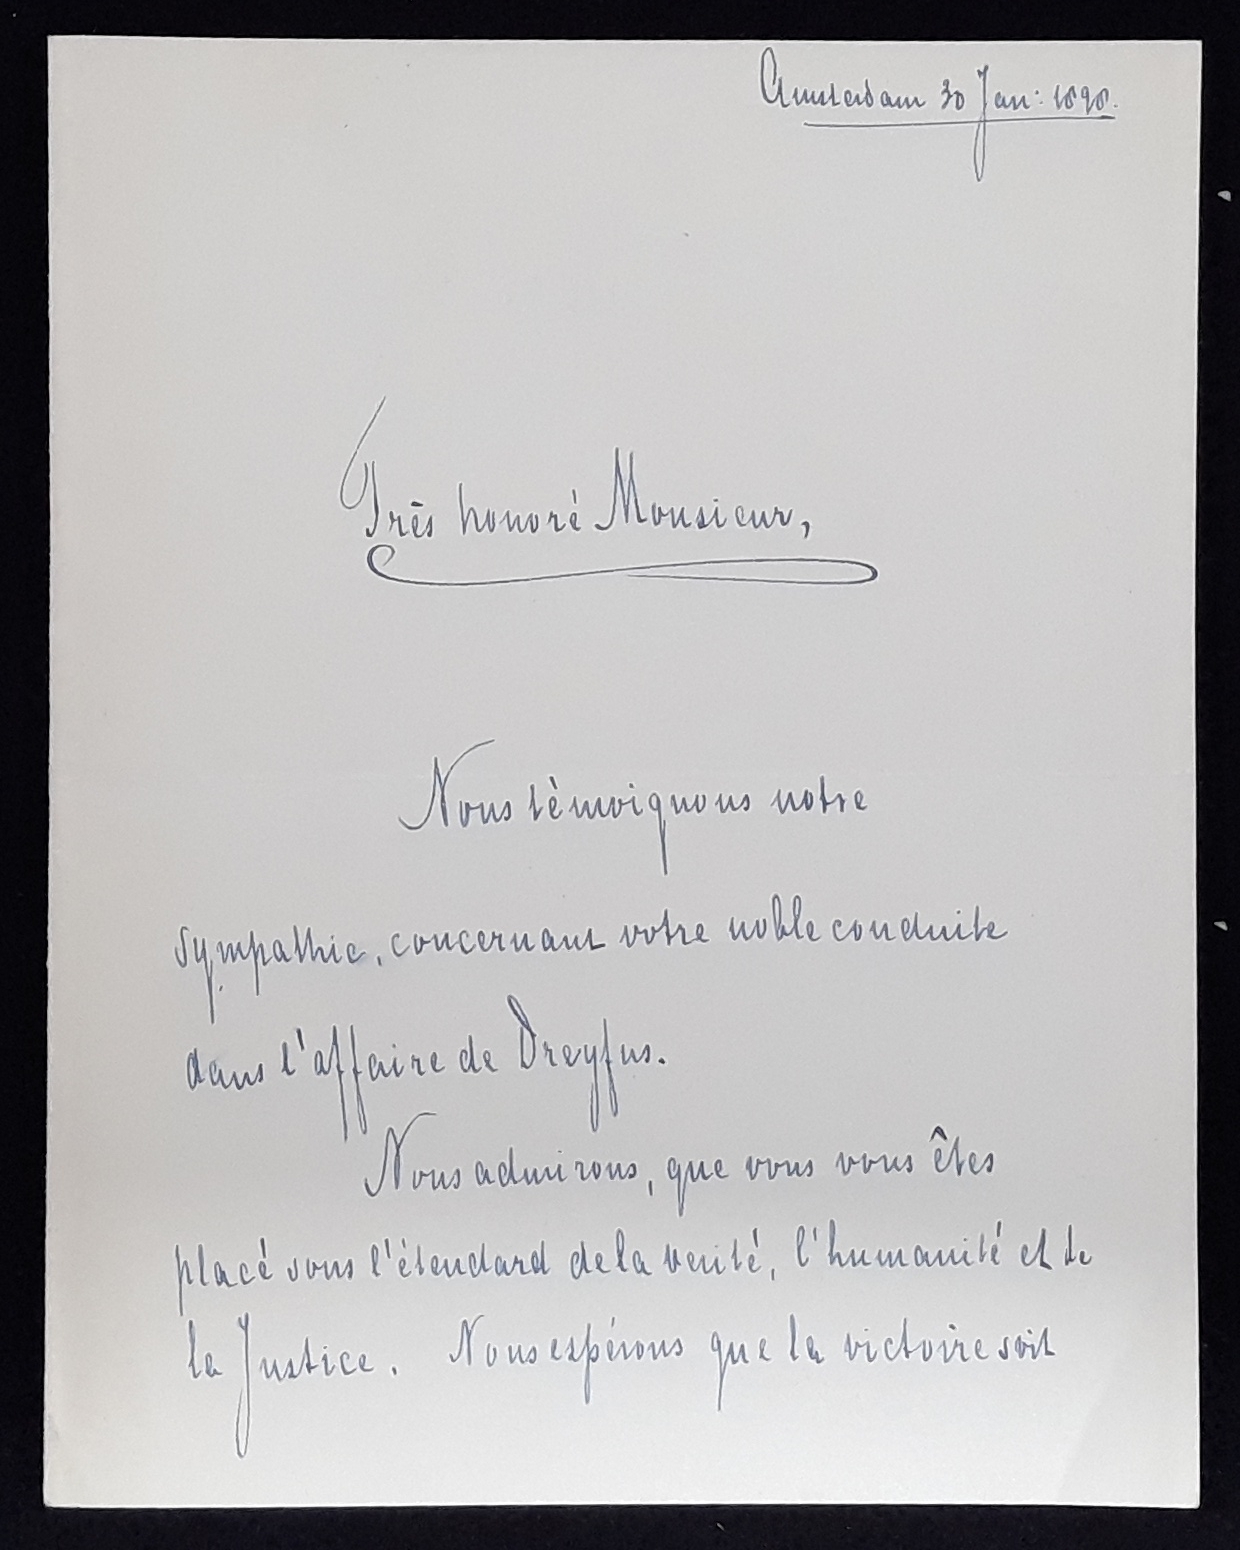 Amsterdam 30 Jan: 1898.
Très honoré Monsieur,
Nous tèmoignons notre
sympathie, concernant votre noble conduite
dans l'affaire de Dreyfus.
Nous admirons, que vous vous êtes
placé sous l'étendard de la verité, l'humanité et de
la Justice. Nous espérons que la victoire soit